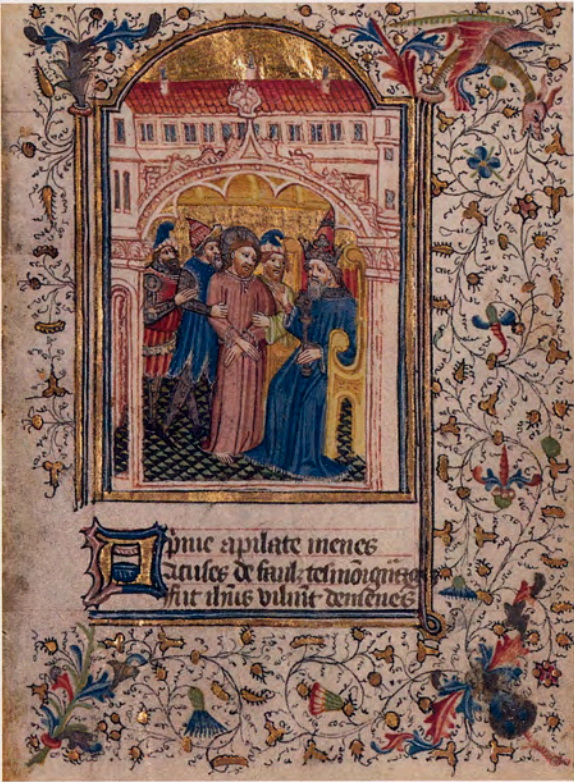 A pme apilate menes
Acuses de faulz tesmoigāgē
fut ihus vilmt demenes